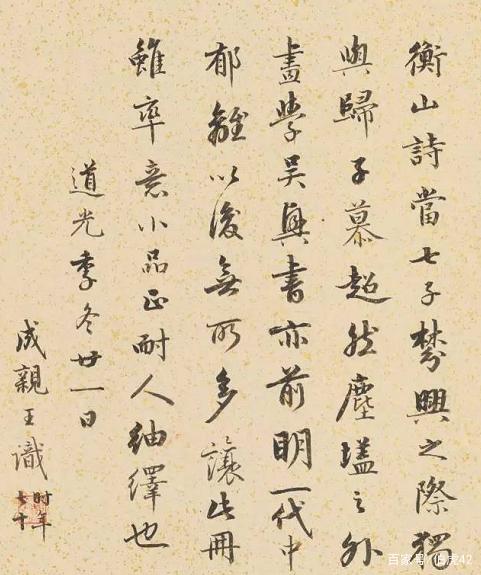 衡山詩當七子棼興之際獨
與歸子慕超然塵壒之外
畫學吳興書亦前明一代中
郁離以後無所多讓此冊
雖率意小品正耐人紬繹也
道光季冬廿一日
成親王識
时年
七十
百家号/伯虎42